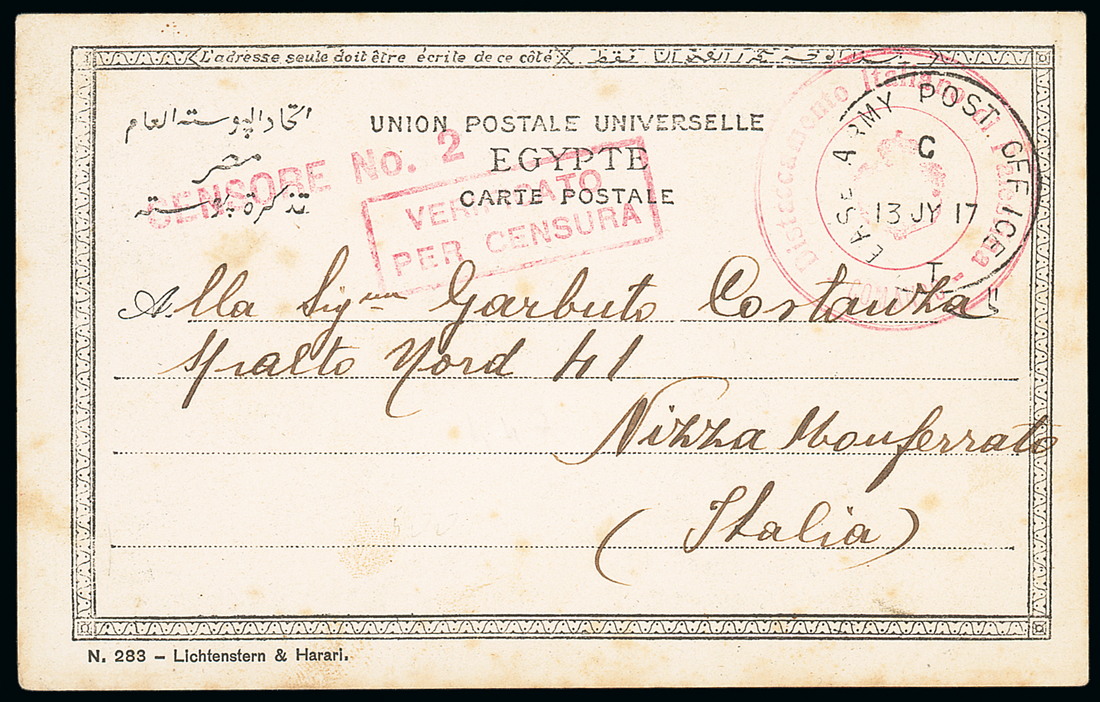 L'adresse seule doit être écrite de ce côté
اتحاد البوسته العام
مصر
تذكرة بوسته
UNION POSTALE UNIVERSELLE
EGYPTE
CARTE POSTALE
CENSORE No. 2
VERIFICATO
PER CENSURA
Distaccamento Italiano di Palestina
COMANDO
BASE ARMY POST OFFICE
C
13 JY 17
T
Alla Signa Garbuto Costanza
Spalto Nord 41
Nizza Monferrato
(Italia)
N. 283 – Lichtenstern & Harari.